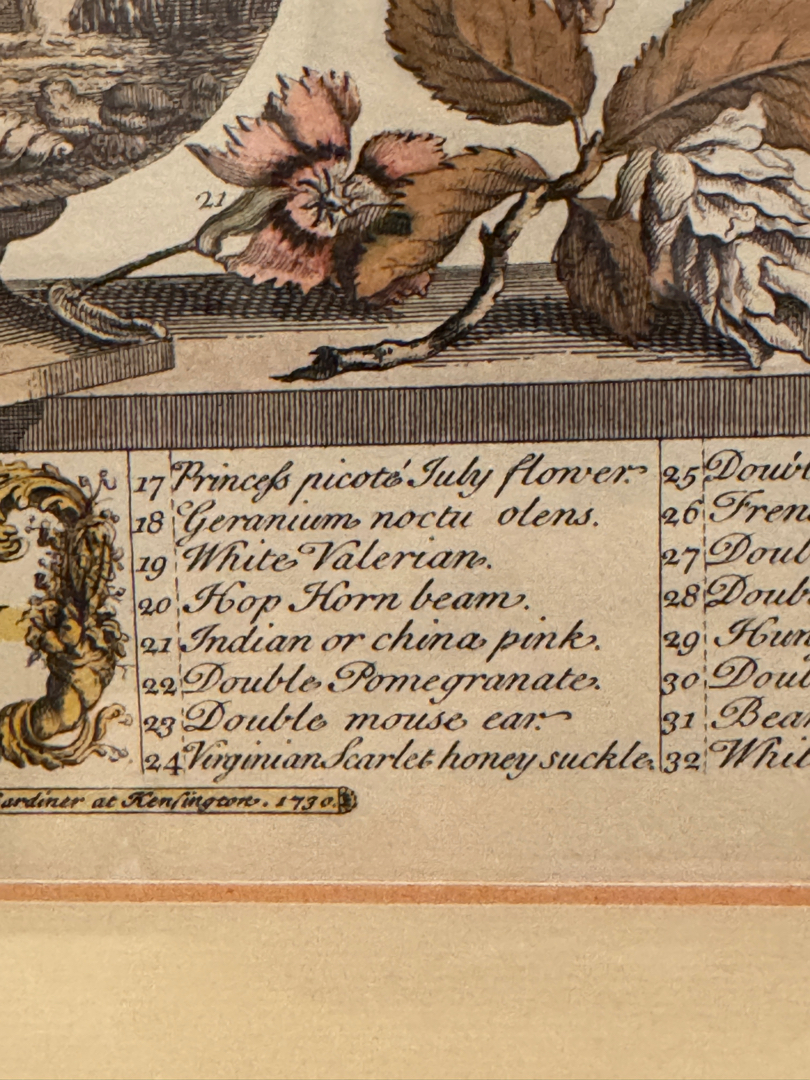 21
17 Princeſs picoté July flower.
18 Geranium noctu olens.
19 White Valerian.
20 Hop Horn beam.
21 Indian or china pink.
22 Double Pomegranate.
23 Double mouse ear.
24 Virginian Scarlet honey suckle.
25 Doub
26 Fren
27 Doul
28 Doub
29 Hun
30 Doul
31 Bear
32 Whit
ardiner at Kenſington. 1730.